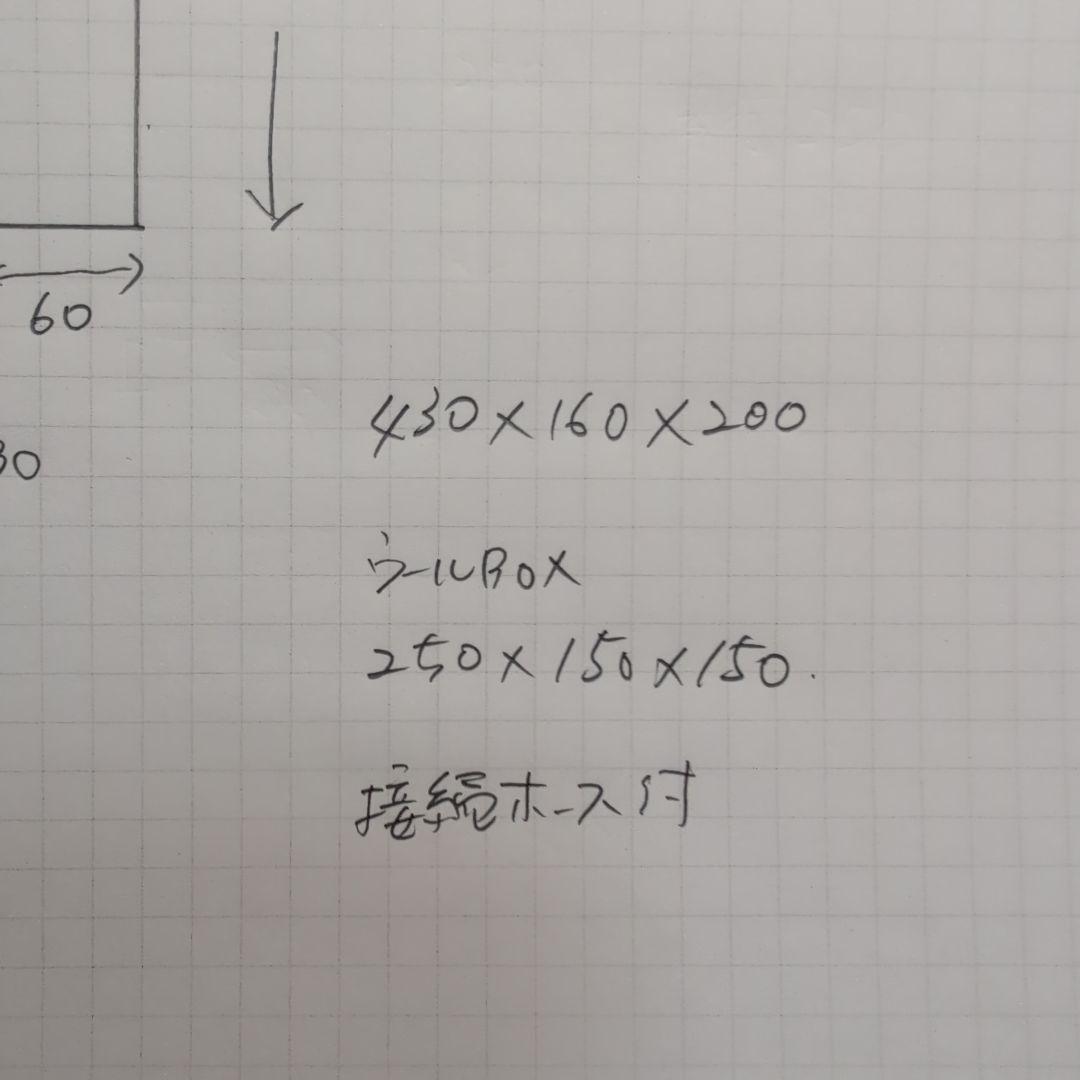 60
30
430×160×200
ウールBOX
250×150×150.
接縄ホース付